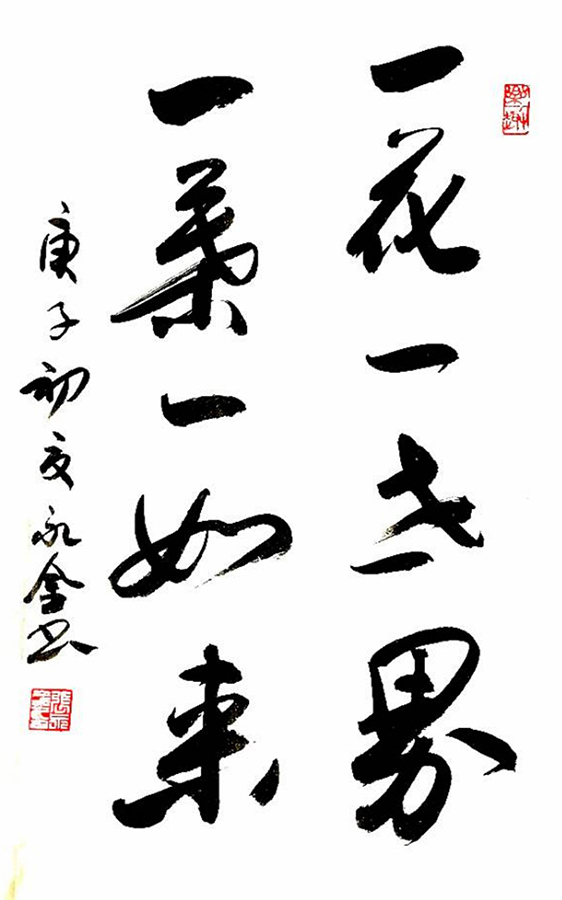 一花一世界
一葉一如来
庚子初夏永金书